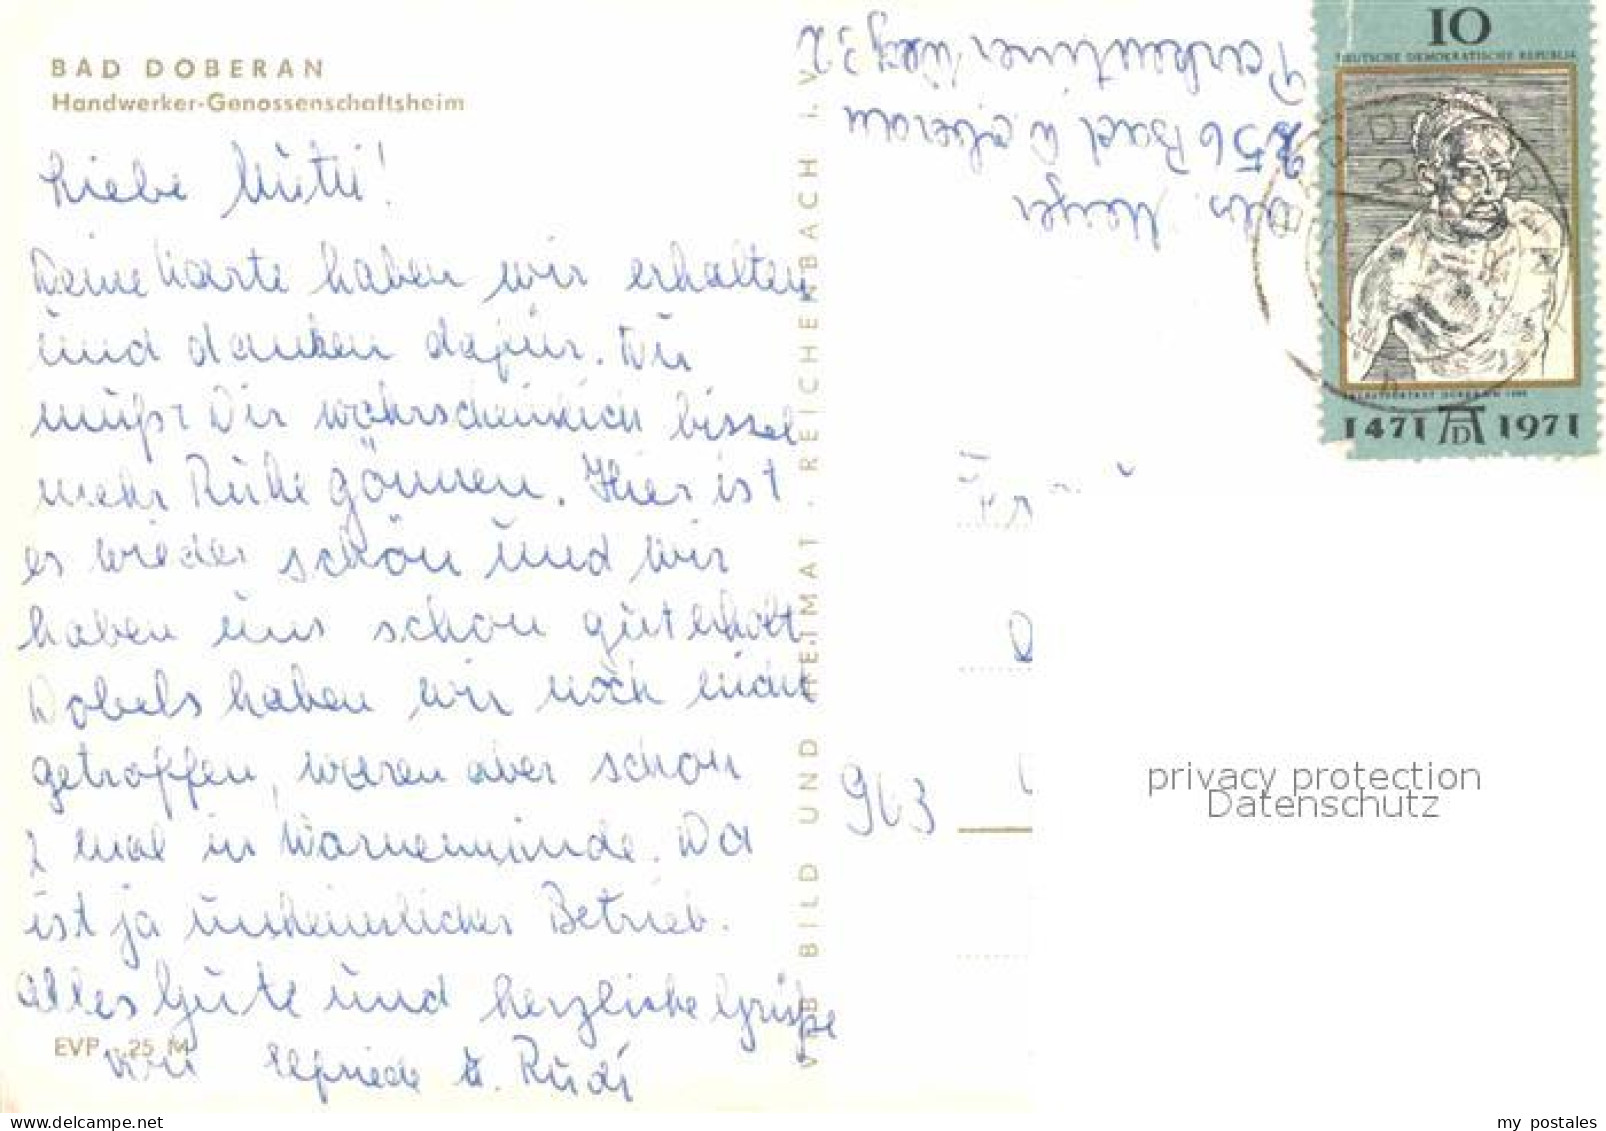 BAD DOBERAN
Handwerker-Genossenschaftsheim
Liebe Mutti!
Deine Karte haben wir erhalten
und danken dafür. Du
mußt Dir wahrscheinlich bissel
mehr Ruhe gönnen. Hier ist
es wieder schön und wir
haben uns schon gut erholt
Dobels haben wir noch nicht
getroffen, waren aber schon
2 mal in Warnemünde. Da
ist ja unheimlicher Betrieb.
Alles Gute und herzliche Grüße
von Elfriede u. Rudi
EVP -,25 M
VEB BILD UND HEIMAT · REICHENBACH I. V.
256 Bad Doberan
Parkentiner Weg 32
963
10
DEUTSCHE DEMOKRATISCHE REPUBLIK
1471 AD 1971
privacy protection
Datenschutz
my postales